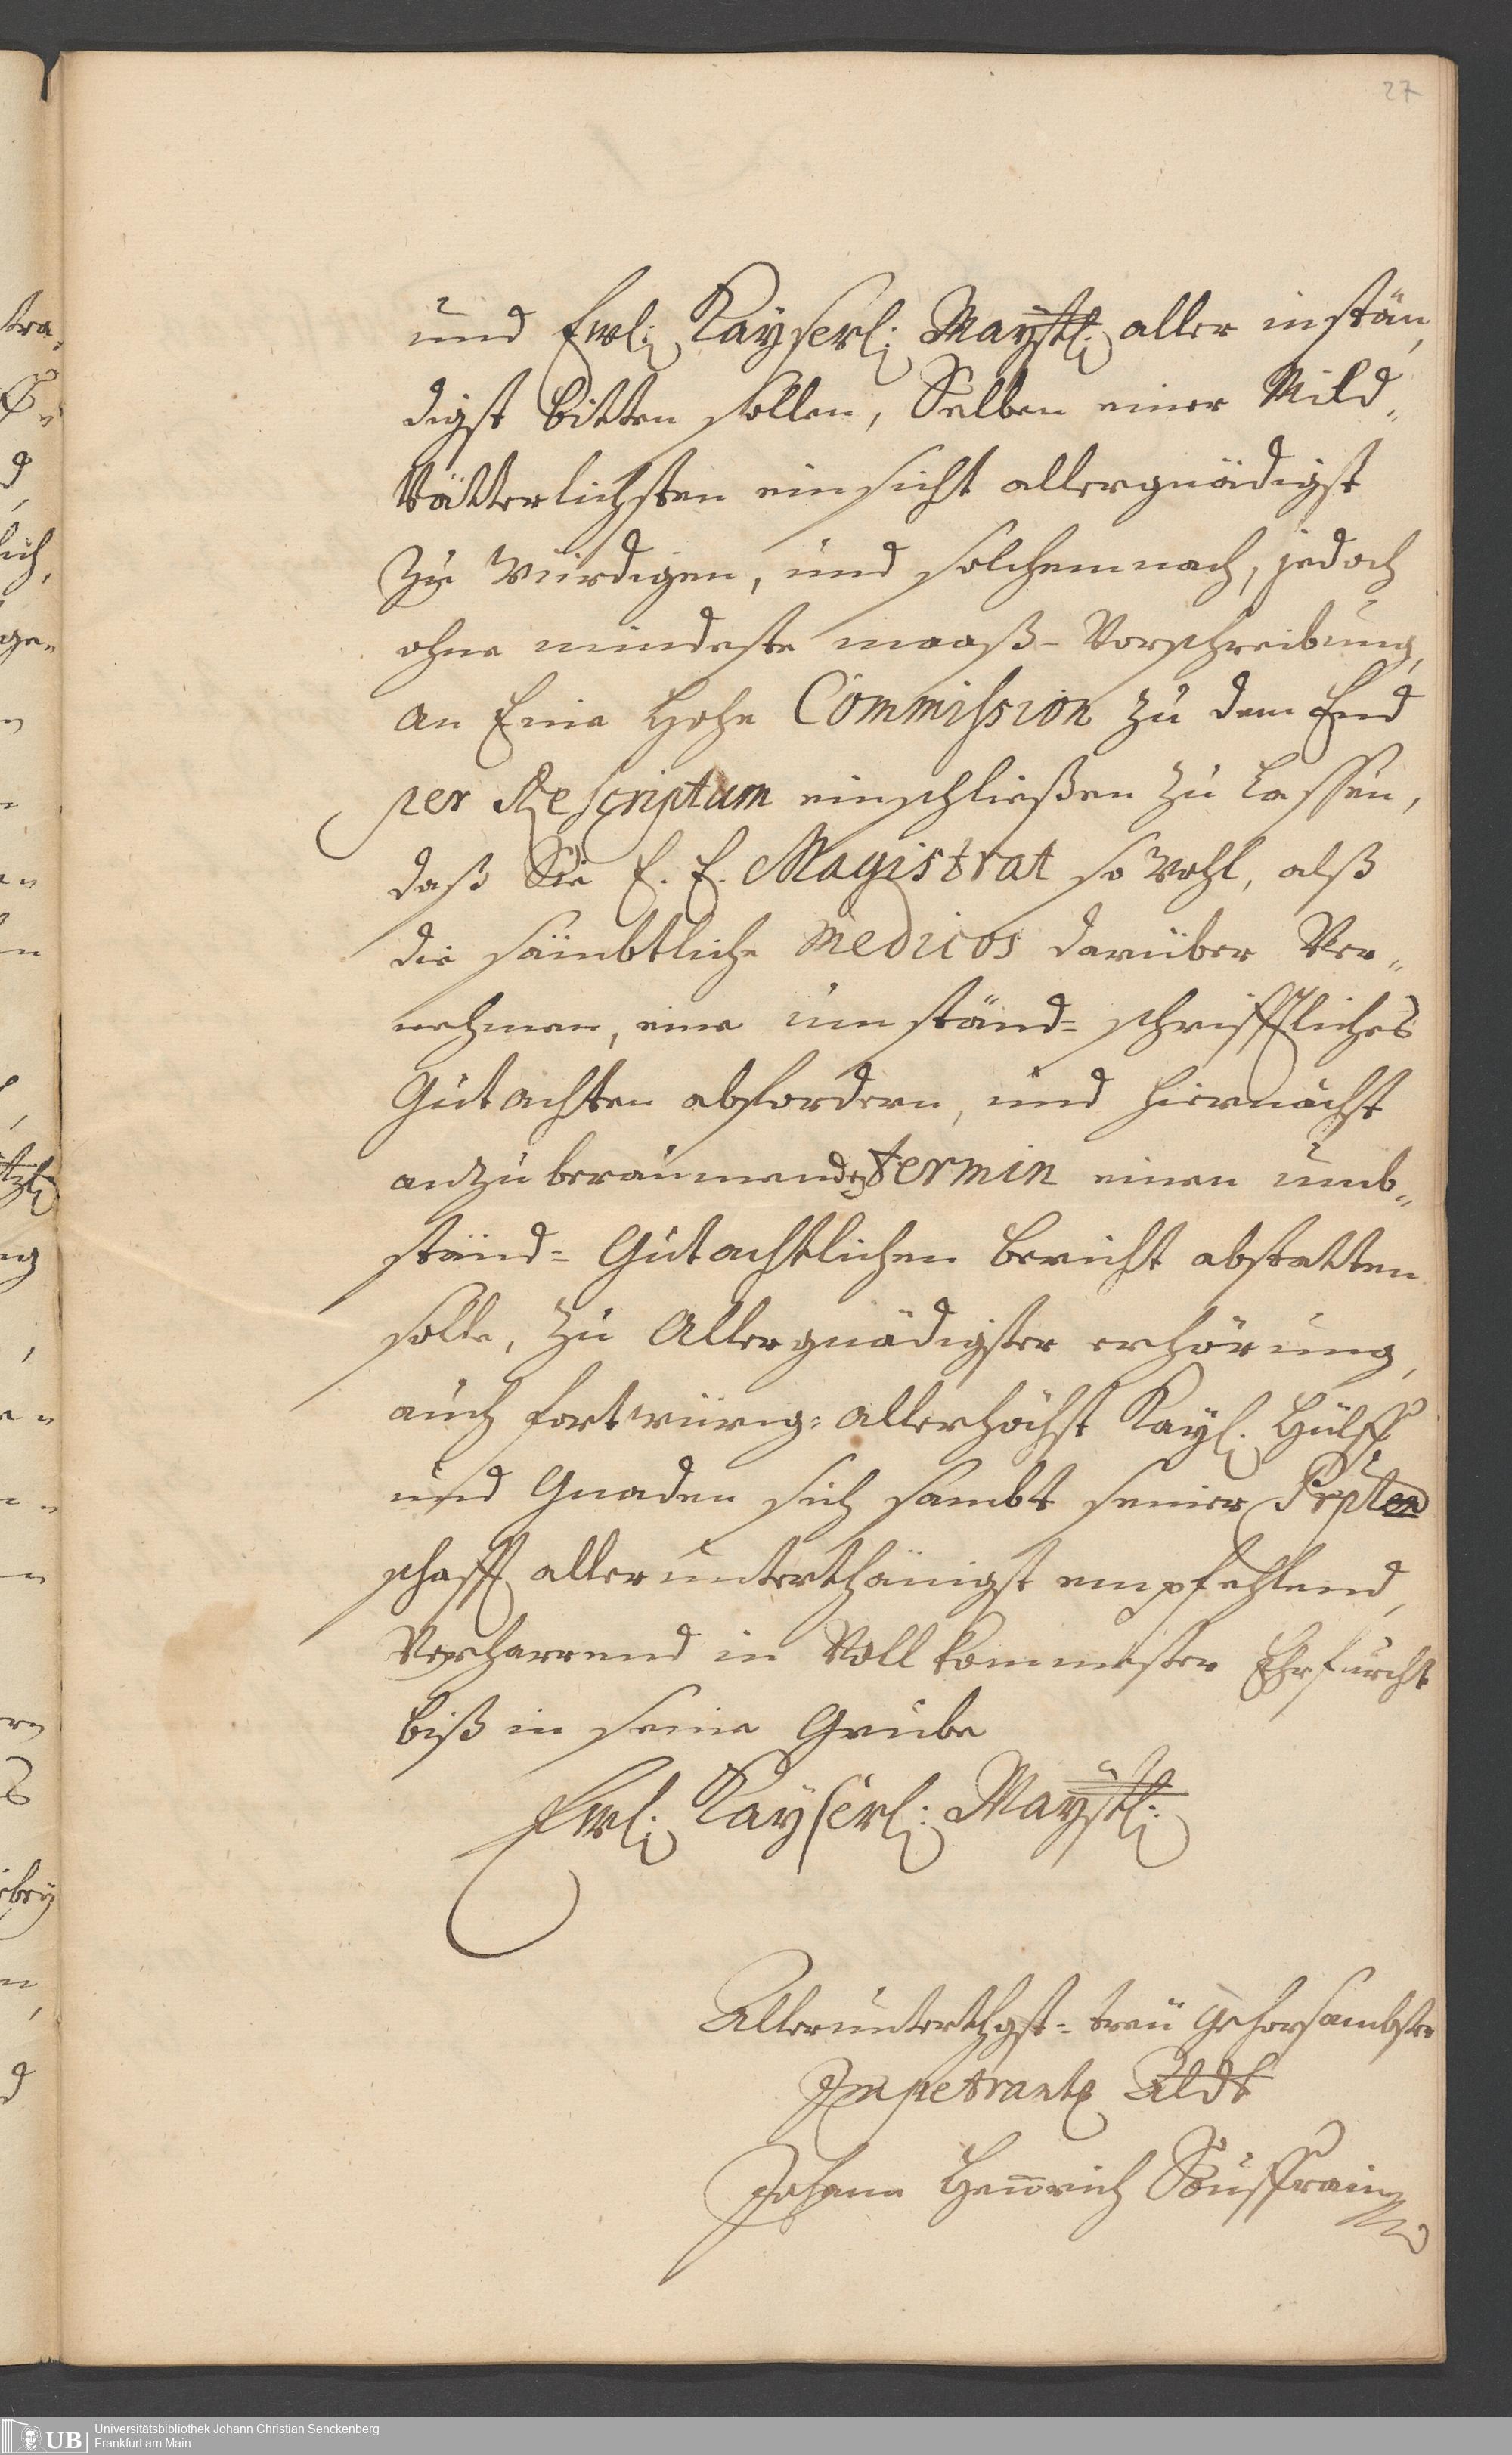 27
und Ewl: Kayserl: Mayst: aller instän,
digst bitten sollen, Selben einer Mild„
Vätterlichsten einsicht allergnädigst
zu würdigen, und solchemnach, jedoch
ohne mindeste maaß-Vorschreibung,
an Eine Hohe Commission zu dem End
per Rescriptum einschließen zu lassen,
daß Sie E. E. Magistrat so wohl, alß
die sämbtliche Medicos darüber Ver„
nehmen, eine umständ= schrifftliches
Gutachten abfordern, und hiernächst
anzuberaumendem termin einen umb„
ständ= Gutachtlichen bericht abstatten
solle, zu Allergnädigster erhörung,
auch fortwürig= allerhöchst Kayl. Hülff
und Gnaden sich sambt seiner
schafft allerunterthänigst empfehlend,
Verharrend in Vollkommester Ehrfurcht
biß in seine Grube
Ewl: Kayserl: Mayst:
Allerunterthgst= treu gehorsambster
Impetrant
Johann Henrich Souffrain
Universitätsbibliothek Johann Christian Senckenberg
Frankfurt am Main
UB